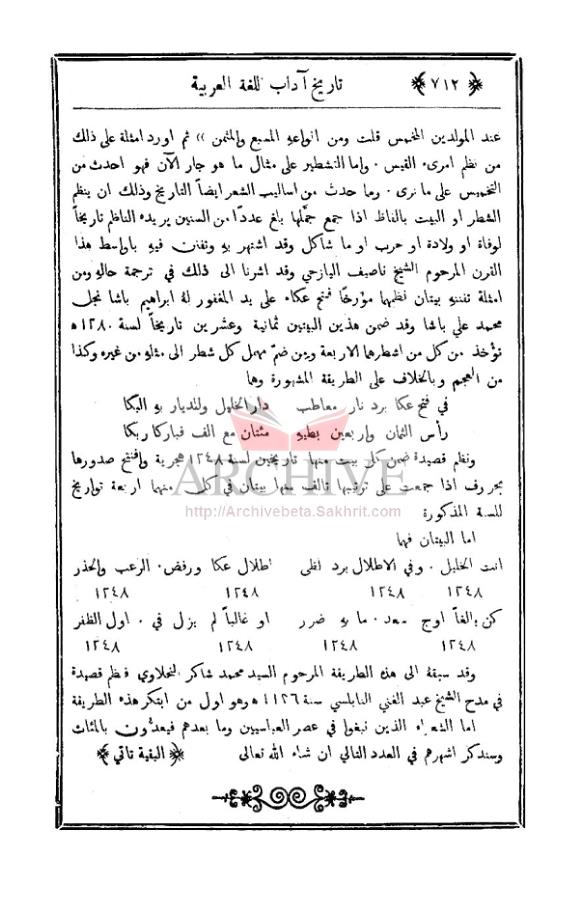 ﴿ ٧١٢ ﴾ تاريخ آداب اللغة العربية
عند المولدين المخمس قلت ومن انواعهِ المسبع والمثمن » ثم اورد امثلة على ذلك
من نظم امرىء القيس . واما التشطير على مثال ما هو جارٍ الآن فهو احدث من
التخميس على ما نرى . وما حدث من اساليب الشعر ايضاً التاريخ وذلك ان ينظم
الشطر او البيت بالفاظ اذا جمع جمّلها بلغ عدداً من السنين يريده الناظم تاريخاً
لوفاة او ولادة او حرب او ما شاكل وقد اشتهر بهِ وتفنن فيهِ باواسط هذا
القرن المرحوم الشيخ ناصيف اليازجي وقد اشرنا الى ذلك في ترجمة حالهِ ومن
امثلة تفننهِ بيتان نظمهما مؤرخاً فتح عكاء على يد المغفور لهُ ابراهيم باشا نجل
محمد علي باشا وقد ضمن هذين البيتين ثمانية وعشرين تاريخاً لسنة ١٢٨٠ هـ
تؤخذ من كل من اشطرها الاربعة وبين ضمّ مهمل كل شطر الى مثلهِ من غيره وكذا
من المعجم وبالخلاف على الطريقة المشهورة وهما
في فتح عكا برد نار معاطب دار الخليل وللديار بهِ البكا
رأس الثمان واربعين بطيهِ مئتان مع الف فباركا ربكا
ونظم قصيدة ضمن كل بيت منها تاريخين لسنة ١٢٤٨ هجرية وافتتح صدورها
بحروف اذا جمعت على ترتيبها تالف منها بيتان في كل منهما اربعة تواريخ
ARCHIVE
http://Archivebeta.Sakhrit.com
للسنة المذكورة
اما البيتان فهما
انت الخليل . وفي الاطلال برد لظى اطلال عكا ورفض. الرعب والحذر
١٢٤٨ ١٢٤٨ ١٢٤٨ ١٢٤٨
كن بالغاً اوج سعد. ما بهِ ضرر او غالباً لم يزل في . اول الظفر
١٢٤٨ ١٢٤٨ ١٢٤٨ ١٢٤٨
وقد سبقهُ الى هذه الطريقة المرحوم السيد محمد شاكر النحلاوي فنظم قصيدة
في مدح الشيخ عبد الغني النابلسي سنة ١١٢٦ هـ وهو اول من ابتكر هذه الطريقة
اما الشعراء الذين نبغوا في عصر العباسيين وما بعدهم فيعدُّون بالمئات
وسنذكر اشهرهم في العدد التالي ان شاء الله تعالى ﴿ البقية تاتي ﴾